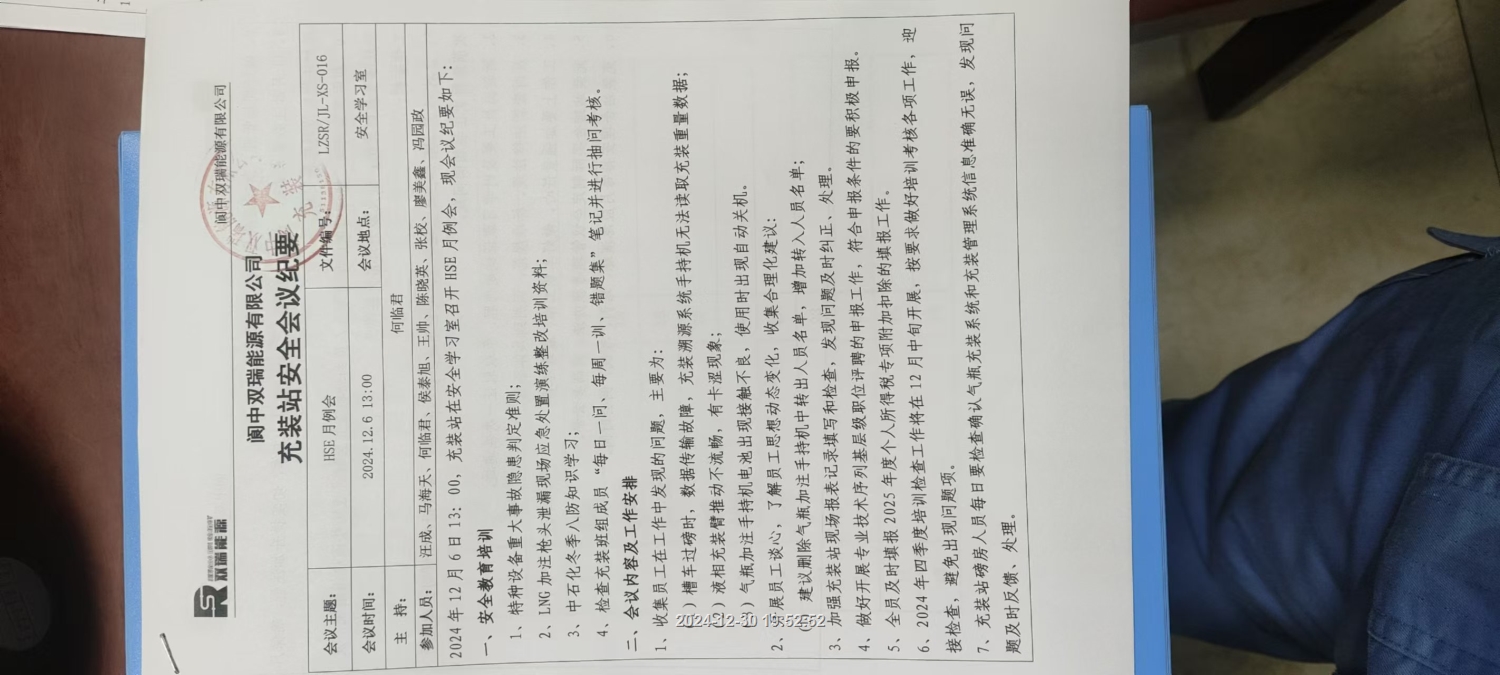 双瑞能源
阆中双瑞能源有限公司
阆中双瑞能源有限公司
充装站安全会议纪要
会议主题： HSE 月例会 文件编号： LZSR/JL-XS-016
会议时间： 2024.12.6 13:00 会议地点： 安全学习室
主 持： 何临君
参加人员： 汪成、马海天、何临君、侯秦旭、王帅、陈晓英、张校、廖美鑫、冯园政
2024 年 12 月 6 日 13：00，充装站在安全学习室召开 HSE 月例会，现会议纪要如下：
一、安全教育培训
1、特种设备重大事故隐患判定准则；
2、LNG 加注枪头泄漏现场应急处置演练整改培训资料；
3、中石化冬季八防知识学习；
4、检查充装班组成员“每日一问、每周一训、错题集”笔记并进行抽问考核。
二、会议内容及工作安排
1、收集员工在工作中发现的问题，主要为：
）槽车过磅时，数据传输故障，充装溯源系统手持机无法读取充装重量数据；
）液相充装臂推动不流畅，有卡涩现象；
）气瓶加注手持机电池出现接触不良，使用时出现自动关机。
2、展员工谈心，了解员工思想动态变化，收集合理化建议：
建议删除气瓶加注手持机中转出人员名单，增加转入人员名单；
3、加强充装站现场报表记录填写和检查，发现问题及时纠正、处理。
4、做好开展专业技术序列基层级职位评聘的申报工作，符合申报条件的要积极申报。
5、全员及时填报 2025 年度个人所得税专项附加扣除的填报工作。
6、2024 年四季度培训检查工作将在 12 月中旬开展，按要求做好培训考核各项工作，迎
接检查，避免出现问题项。
7、充装站磅房人员每日要检查确认气瓶充装系统和充装管理系统信息准确无误，发现问
题及时反馈、处理。
2024-12-30 19:52:52